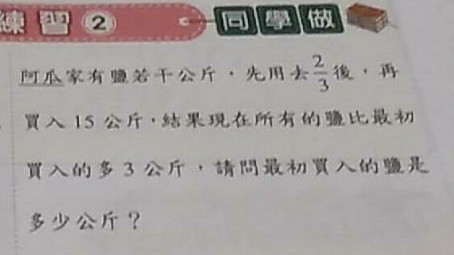 練習② 同學做
阿瓜家有鹽若干公斤，先用去2/3後，再
買入15公斤，結果現在所有的鹽比最初
買入的多3公斤，請問最初買入的鹽是
多少公斤？